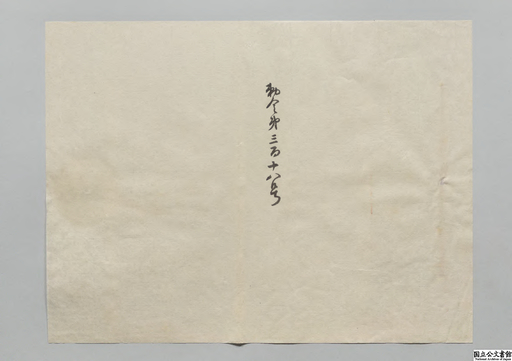 勅令第三百十八号
国立公文書館
National Archives of Japan